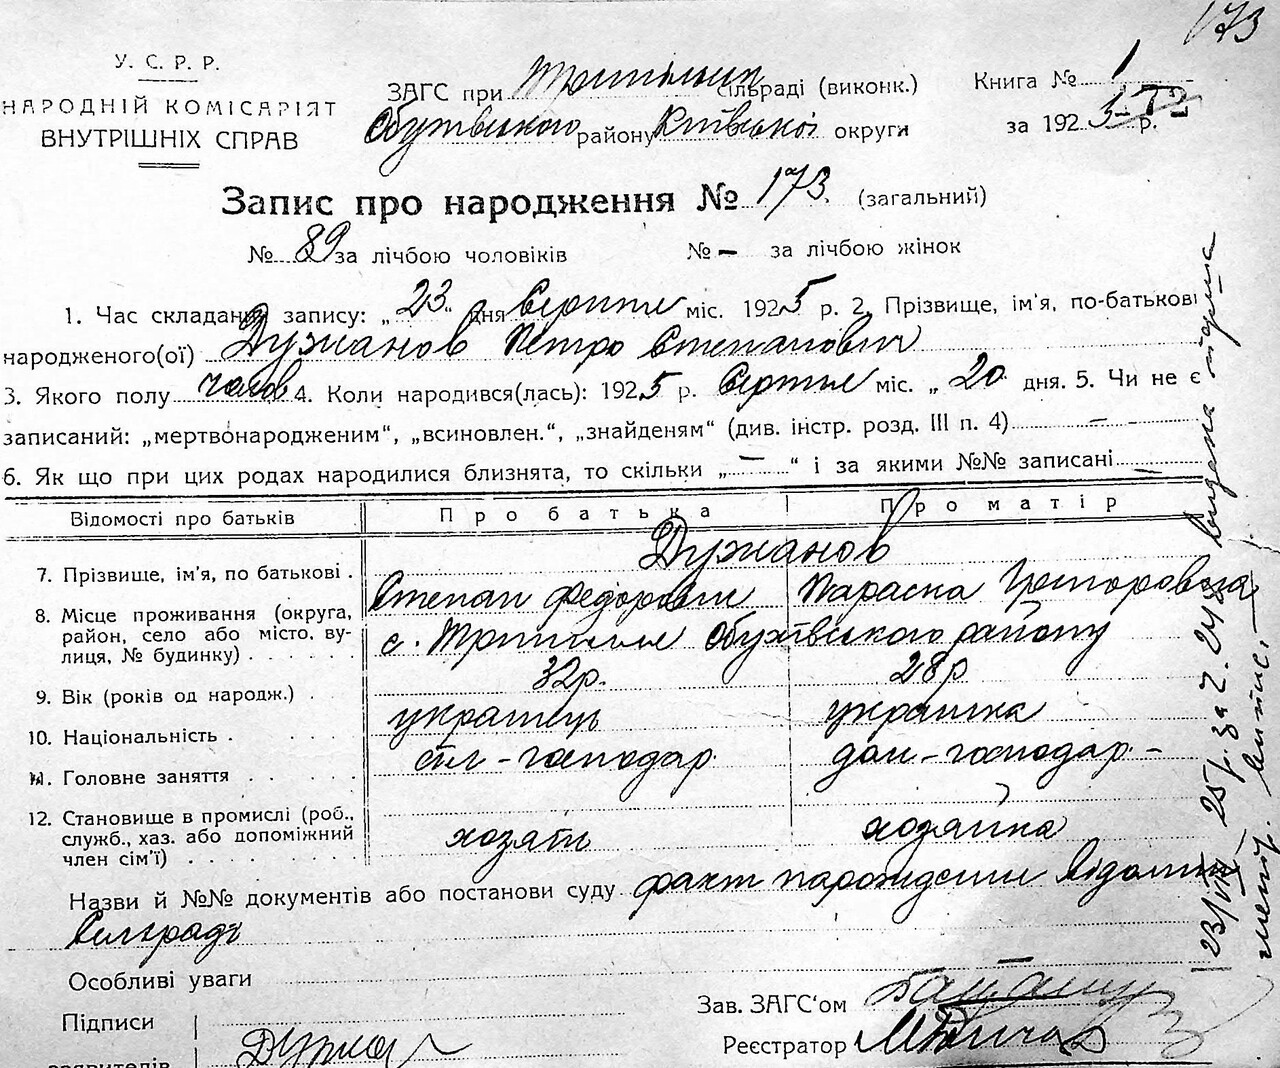 173
У. С. Р. Р.
НАРОДНІЙ КОМІСАРІЯТ
ВНУТРІШНІХ СПРАВ
ЗАГС при сільраді (виконк.)
Обухівського району Київської округи
Книга № 1
за 1925 р.
Запис про народження № 173 (загальний)
№ 89 за лічбою чоловіків № — за лічбою жінок
1. Час складання запису: „23“ дня Серпня міс. 1925 р. 2. Прізвище, ім'я, по-батькові
народженого(ої) Дужанов Петро Степанович
3. Якого полу чолов 4. Коли народився(лась): 1925 р. Серпня міс. „20 дня. 5. Чи не є
записаний: „мертвонародженим“, „всиновлен.“, „знайденям“ (див. інстр. розд. III п. 4) —
6. Як що при цих родах народилися близнята, то скільки „—“ і за якими №№ записані —
Відомості про батьків Про батька Про матір
Дужанов
7. Прізвище, ім'я, по батькові . Степан Федорович Параска Григоровна
8. Місце проживання (округа,
район, село або місто, вулиця, № будинку) . . . . . с. Трипілля Обухівського району
9. Вік (років од народж.) . 32р. 28р
10. Національність . українець українка
11. Головне заняття . . . . . госпoдар дом-господар-
12. Становище в промислі (роб.,
служб., хаз. або допоміжний
член сім'ї) . . . . . хозяїн хозяйка
Назви й №№ документів або постанови суду факт народження відомий
Сільраді
Особливі уваги
Підписи
заявителів
Зав. ЗАГС'ом
Реєстратор
23/VIII 25 р. за № 248 видана